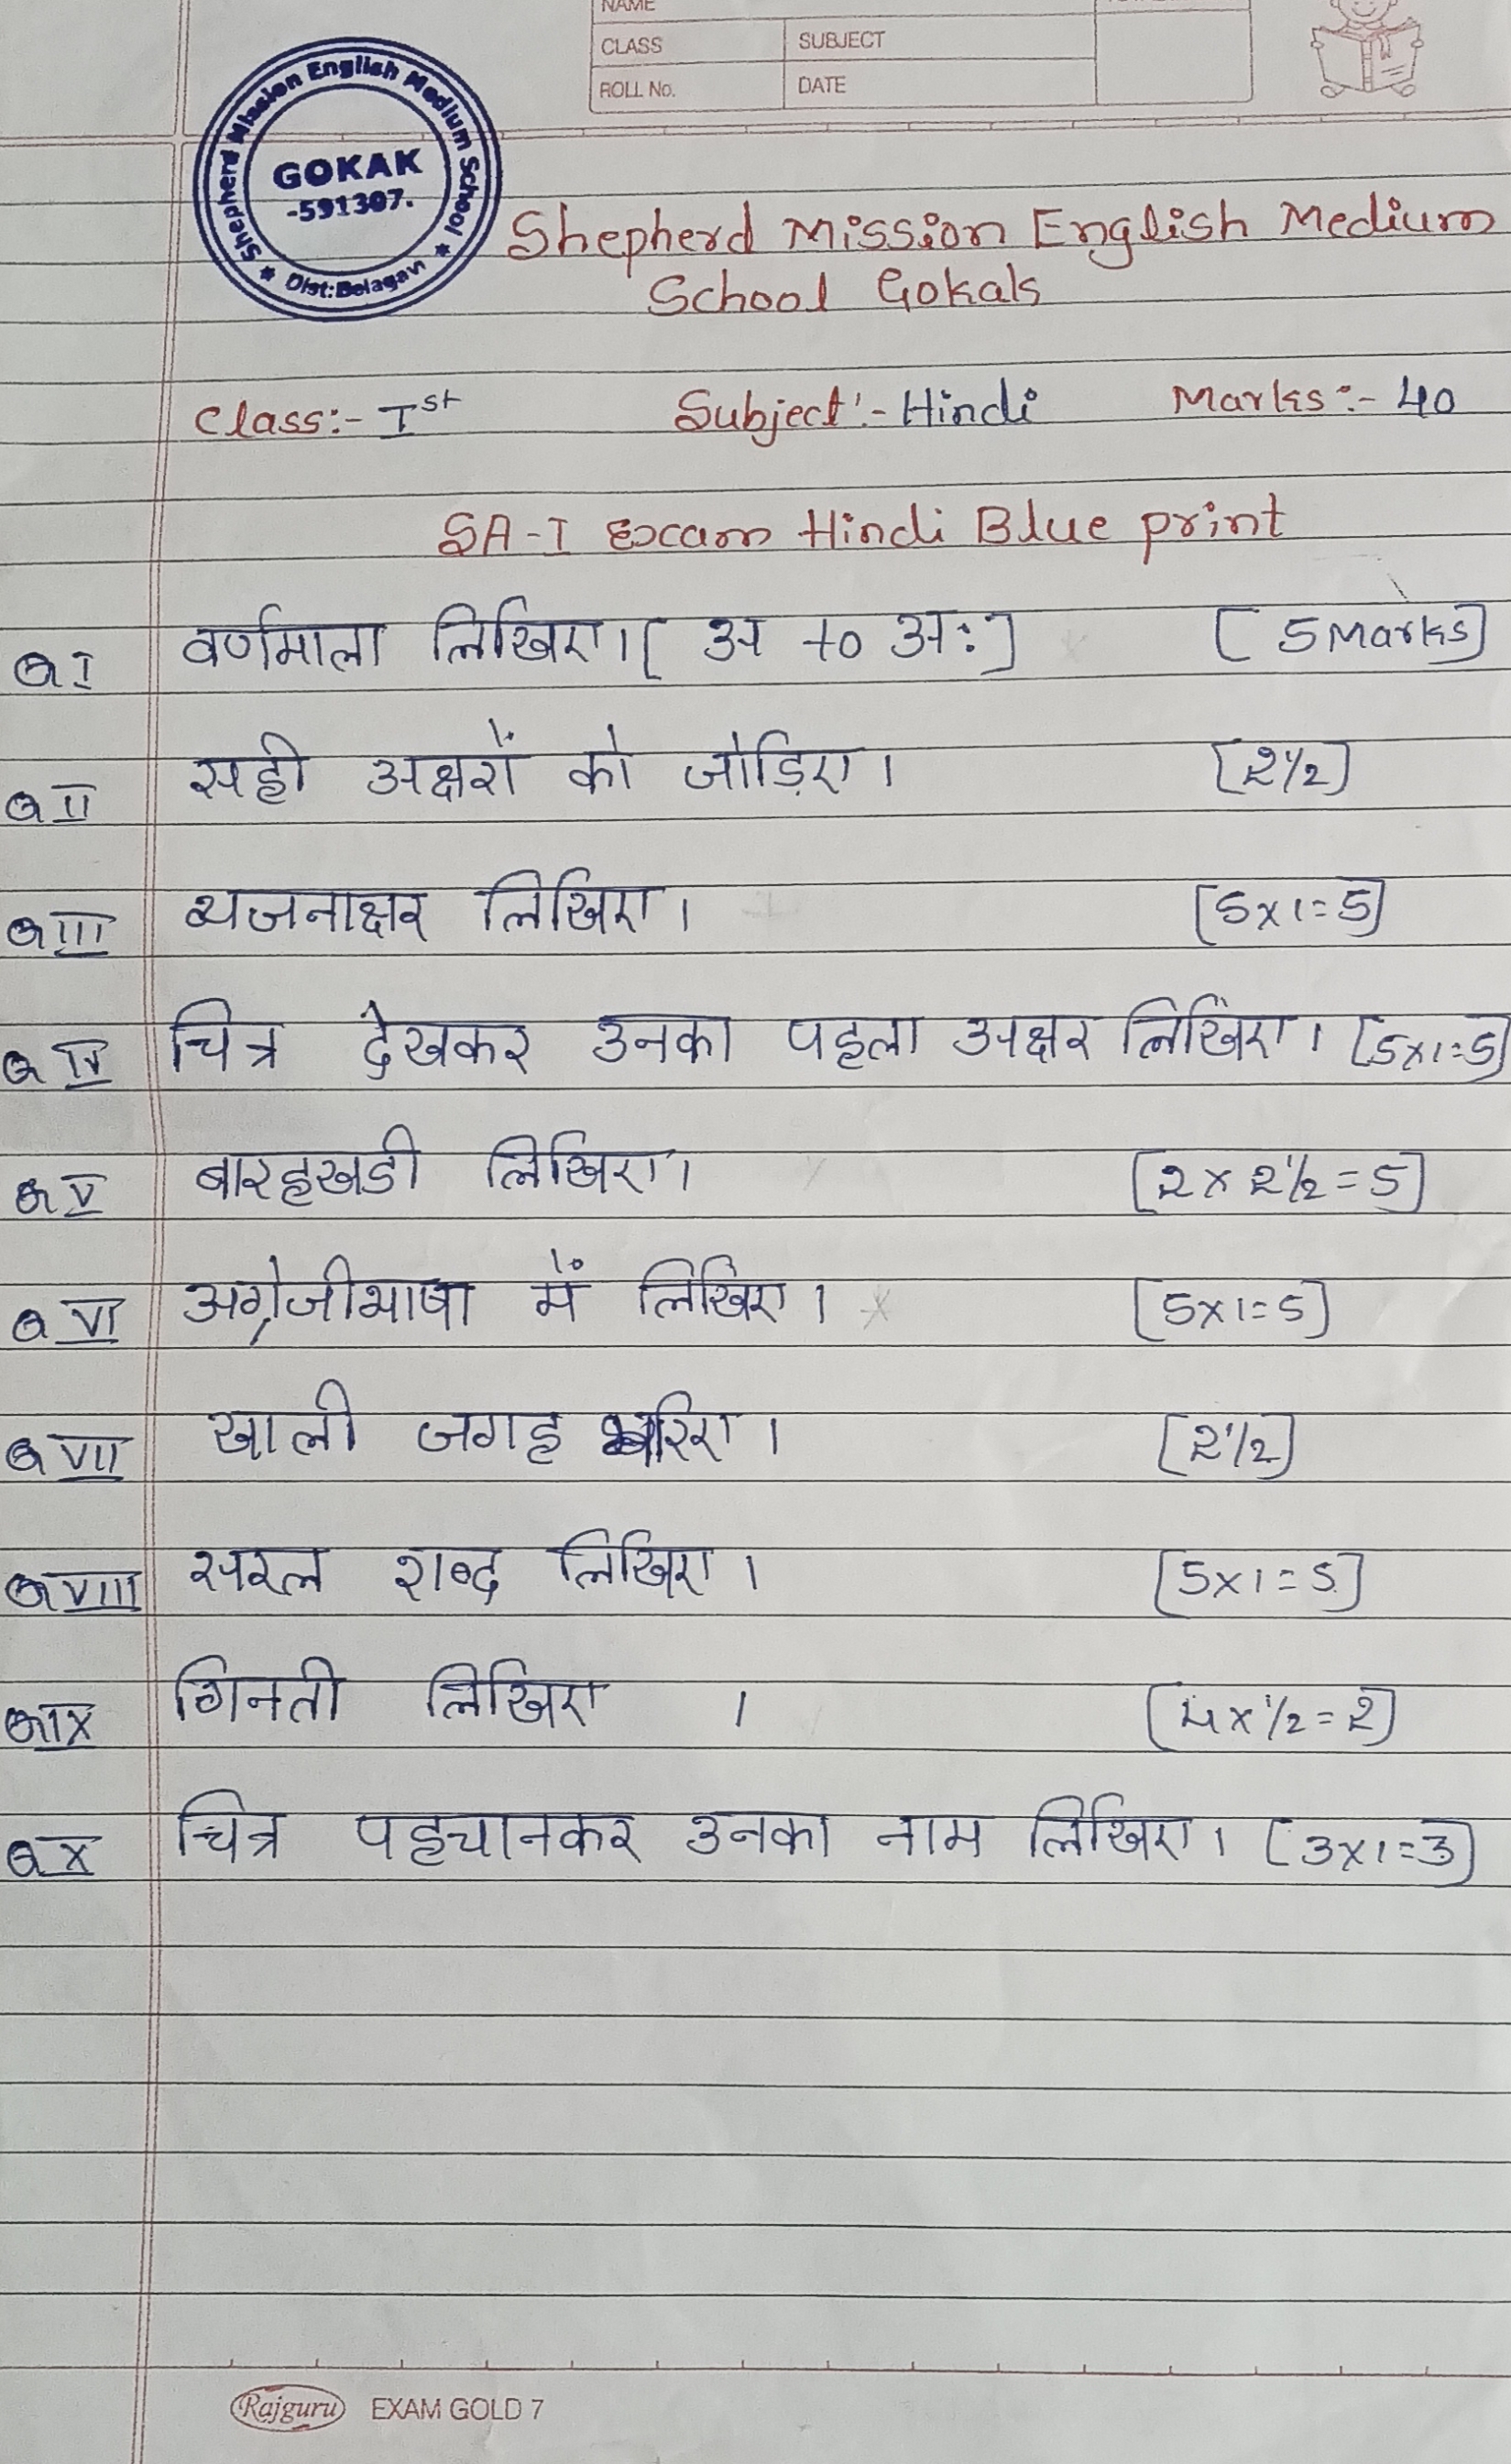 NAME
CLASS
SUBJECT
ROLL No.
DATE
Shepherd Mission English Medium School
GOKAK
-591307.
Dist:Belagavi
Shepherd Mission English Medium
School Gokak
Class:- Ist Subject:- Hindi Marks:- 40
SA-I Exam Hindi Blue print
Q I वर्णमाला लिखिए। [ अ to अः ] [ 5 Marks ]
Q II सही अक्षरों को जोड़िए। [2 1/2]
Q III व्यजनाक्षर लिखिए। [5x1=5]
Q IV चित्र देखकर उनका पहला अक्षर लिखिए। [5x1=5]
Q V बारहखडी लिखिए। [2 x 2 1/2 = 5]
Q VI अग्रेजीभाषा में लिखिए। [5x1=5]
Q VII खाली जगह भरिए। [2 1/2]
Q VIII सरल शब्द लिखिए। [5x1=5]
Q IX गिनती लिखिए । [4 x 1/2 = 2]
Q X चित्र पहचानकर उनका नाम लिखिए। [3x1=3]
Rajguru EXAM GOLD 7